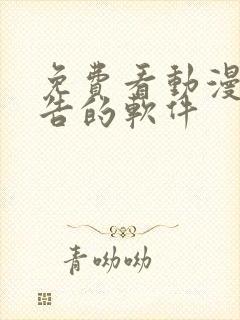 免費看動漫
告的軟件
青呦呦